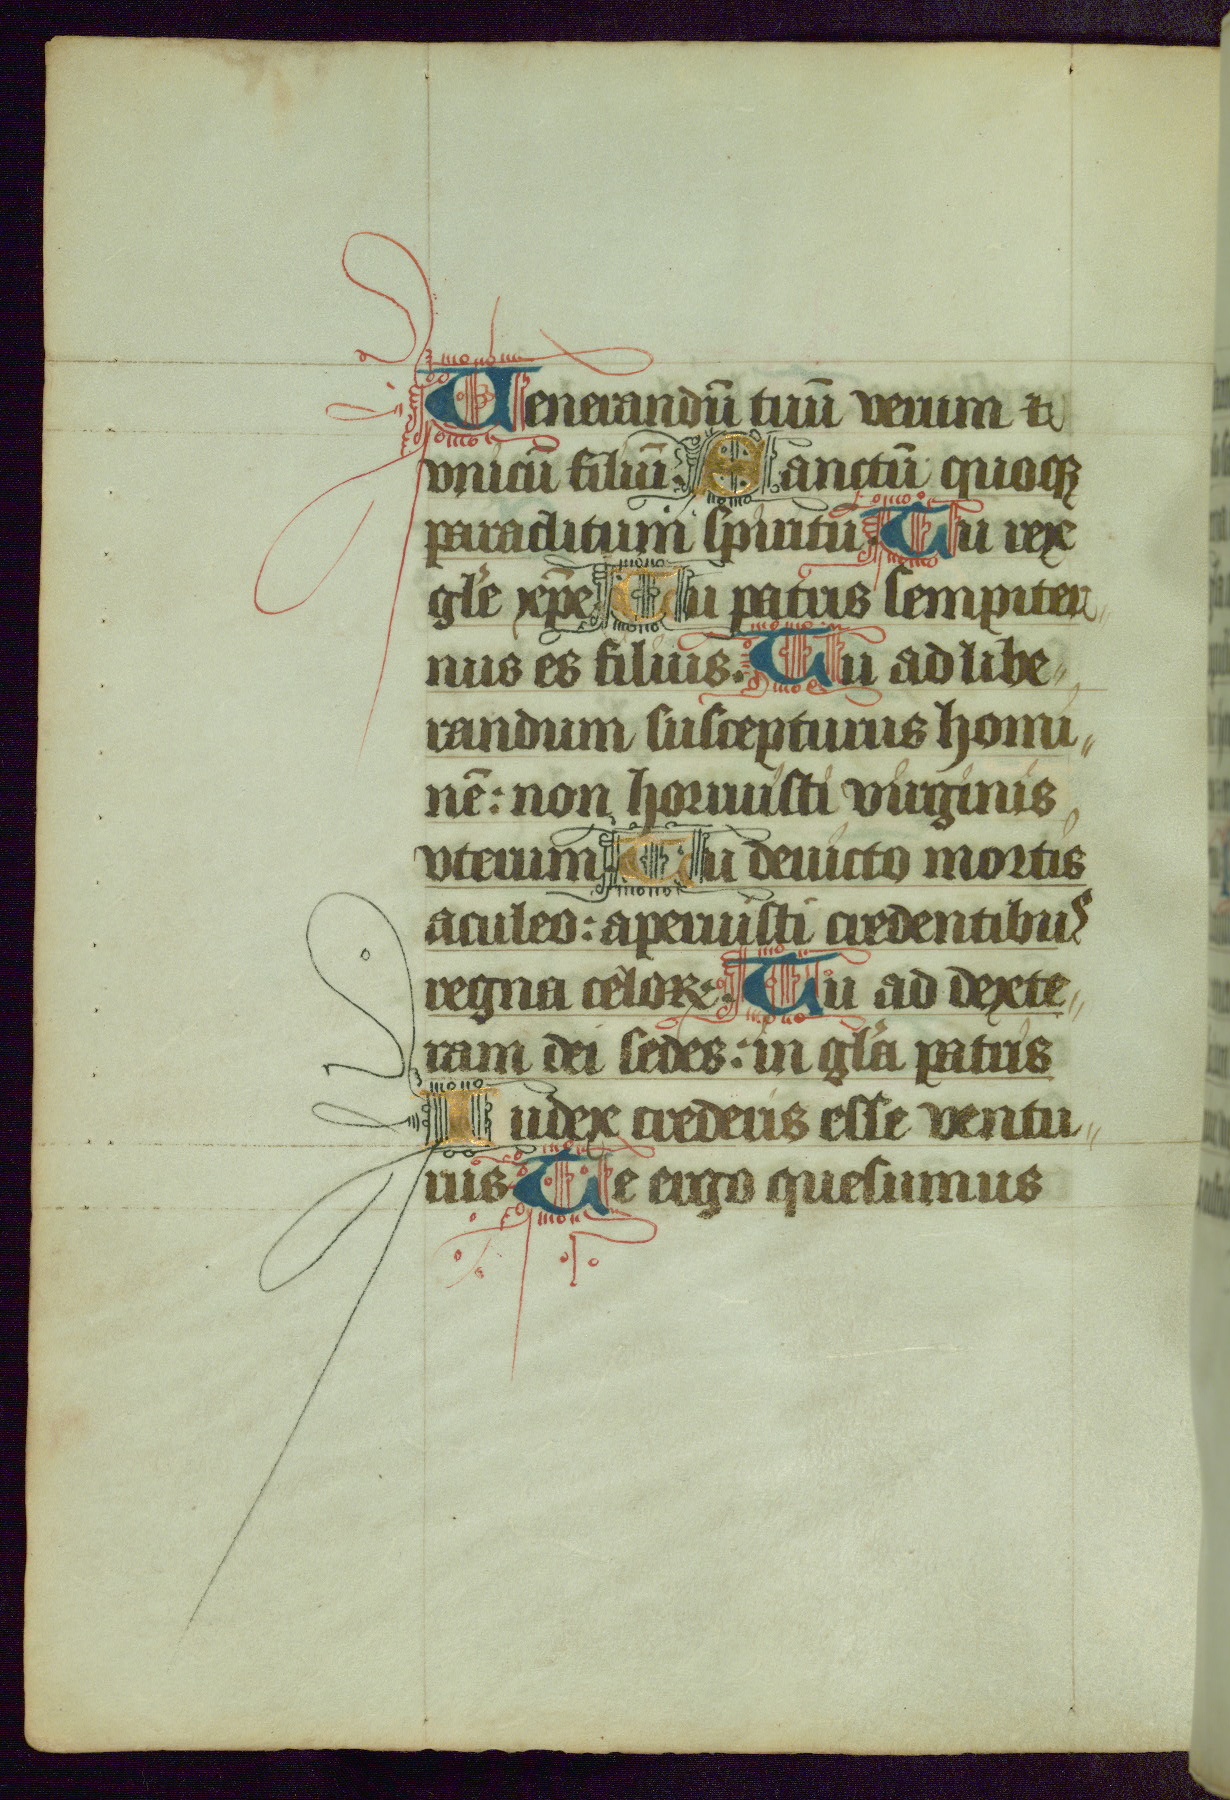 Uenerandū tuū verum &
vnicū filiū. Sanctū quoqꝫ
paraclitum spiritū. Tu rex
gl'e xp̄e. Tu patris sempiter
nus es filius. Tu ad libe
randum suscepturus homi
nē: non horruisti virginis
vterum. Tu deuicto mortis
aculeo: aperuisti credentibus
regna celoꝝ. Tu ad dexte
ram dei sedes: in gl'a patris
Iudex crederis esse ventu
rus Te ergo quesumus